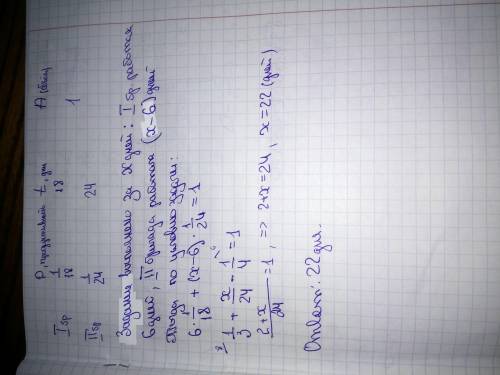 P, продуктивн. t, дни A (объём)
I бр 1/18 18
1
II бр 1/24 24
Задание выполнено за x дней: I бр работала
6 дней, II бригада работала (x-6) дней
Тогда по условию задачи:
6·1/18 + (x-6)·1/24 = 1
8 1/3 + x/24 - 1/4 6 = 1
2+x/24 = 1, => 2+x=24, x=22 (дней)
Ответ: 22 дня.